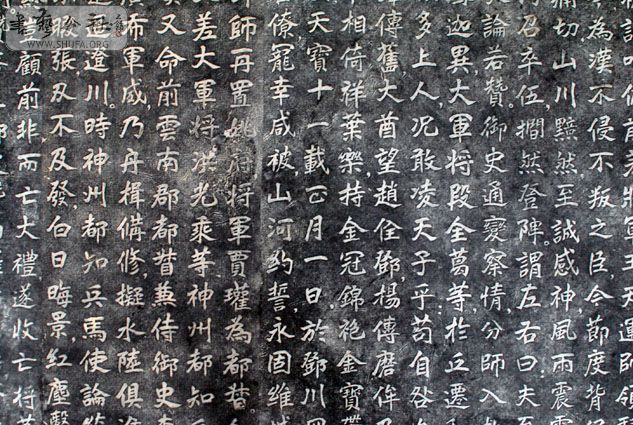 將軍王天運帥領
為漢不侵不叛之臣今節度背
痛切山川黯然至誠感神風雨震
召卒伍撊然登陴謂左右曰夫至
論若贊御史通變察情分師入
迦異大軍將段全葛等於丘遷
多上人况敢凌天子乎苟自咎
傳舊大酋望趙佺鄧楊傳磨侔
相倚祥葉樂持金冠錦袍金寶帶
天寶十一載正月一日於鄧川
僚寵幸咸被山河約誓永固維城
師再置姚府將軍賈瓘為都督
差大軍將洪光乘等神州都知
又命前雲南郡都督兼侍御史
布軍威乃舟楫備修擬水陸俱
遼川時神州都知兵馬使論
張及不及發白日晦景紅塵翳
顧前非而亡大禮遂收亡將等
WWW.SHUFA.ORG